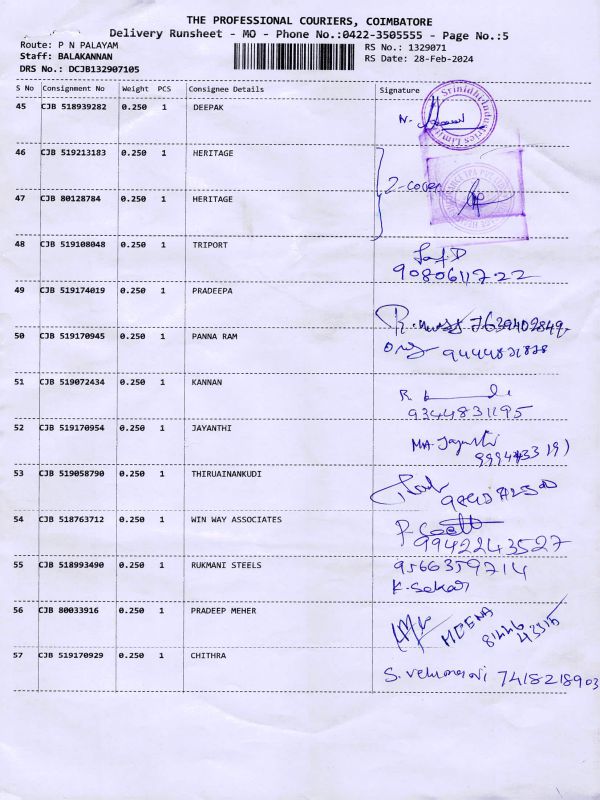 THE PROFESSIONAL COURIERS, COIMBATORE
Delivery Runsheet - MO - Phone No.:0422-3505555 - Page No.:5
Route: P N PALAYAM
RS No.: 1329071
Staff: BALAKANNAN
RS Date: 28-Feb-2024
DRS No.: DCJB132907105
S No Consignment No Weight PCS Consignee Details Signature
45 CJB 518939282 0.250 1 DEEPAK
46 CJB 519213183 0.250 1 HERITAGE
2-cover
47 CJB 80128784 0.250 1 HERITAGE
48 CJB 519108048 0.250 1 TRIPORT
9080611722
49 CJB 519174019 0.250 1 PRADEEPA
7639402849
50 CJB 519170945 0.250 1 PANNA RAM
9444821828
51 CJB 519072434 0.250 1 KANNAN
9344831195
52 CJB 519170954 0.250 1 JAYANTHI
53 CJB 519058790 0.250 1 THIRUAINANKUDI
54 CJB 518763712 0.250 1 WIN WAY ASSOCIATES
9942243527
55 CJB 518993490 0.250 1 RUKMANI STEELS
9566359714
K. Sekar
56 CJB 80033916 0.250 1 PRADEEP MEHER
MEENA
81446
43315
57 CJB 519170929 0.250 1 CHITHRA
7418218903